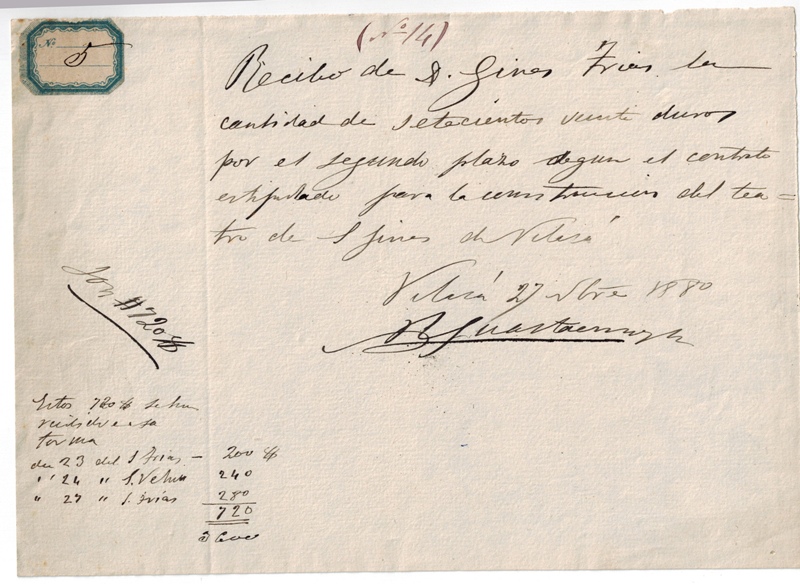 Nº 5
(Nº 14)
Recibo de D. Gines Frias la
cantidad de setecientos veinte duros
por el segundo plazo segun el contrato
estipulado para la construccion del tea=
tro de S Gines de Vilasá
Vilasá 27 Nbre 1880
Son #720#
Estos 720# se han
recibido en esa
forma
dia 23 del S. Frias — 200 #
" 24 " S. 240
" 27 " S. Frias 280
720